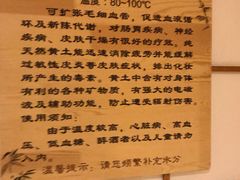 温度：80~100℃
可扩张毛细血管，促进血液循
环及新陈代谢，对肠胃疾病、神经
疾病、皮肤干燥有很好的疗效。纯
天然黄土能迅速消除疲劳，舒缓过
敏性皮炎等皮肤症状，排出化妆
所产生的毒素。黄土中含有对身体
有利的各种矿物质，有强大的电磁
波及辅助功能，防止遭受辐射伤害
使用须知：
由于温度较高，心脏病、高血
、低血糖、醉酒者以及儿童请勿
入内。
温馨提示：请您频繁补充水分